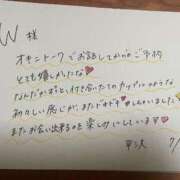 W 様
オキニトークでお話してからのご予約
とても嬉しかったな❤
なんだかずっと付き合いたてのカップルのような
初々しい感じが、またドキドキしちゃいました❤
またお会い出来るのを楽しみにしています❤
7/